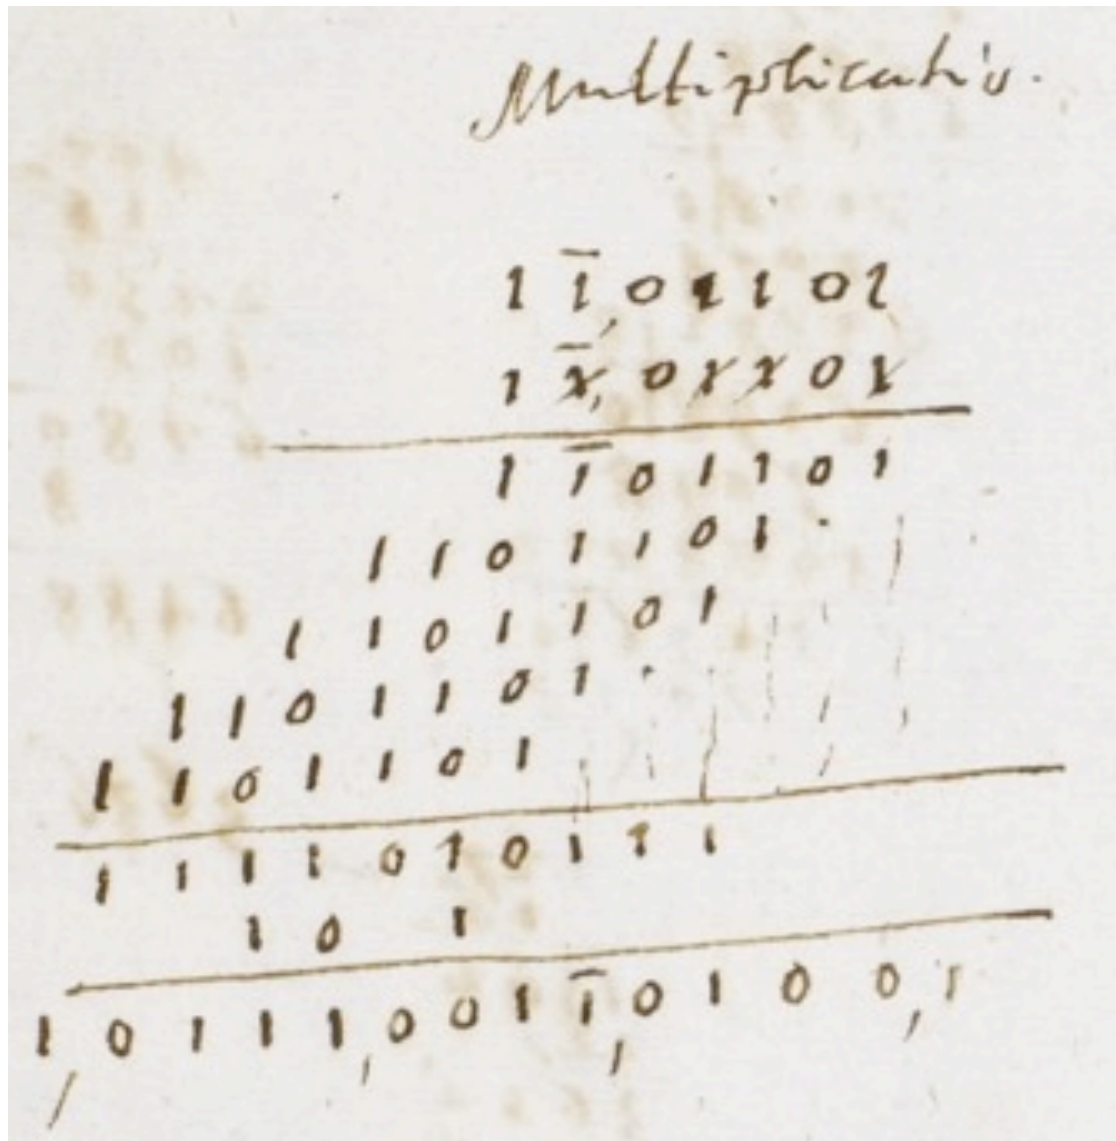 Multiplicatio.
1 1̅,0 1 1 0 1
1 1̅,0 1 1 0 1
1 1̅ 0 1 1 0 1
1 1 0 1 1 0 1 .
1 1 0 1 1 0 1
1 1 0 1 1 0 1 .
1 1 0 1 1 0 1
1 1 1 1 0 1 0 1 1 1
1 0 1
1 0 1 1 1,0 0 1 1̅,0 1 0 0,1